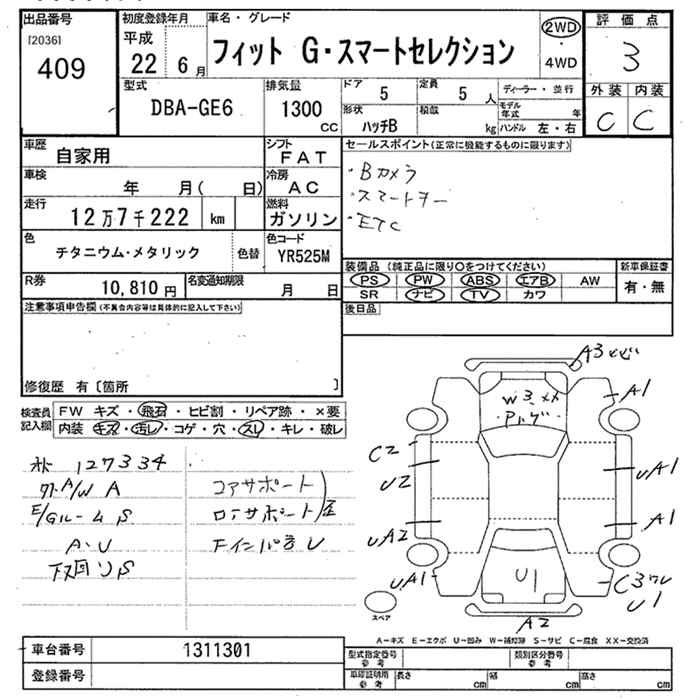 出品番号
[2036]
409
初度登録年月
平成
22 6 月
車名・グレード
フィット G・スマートセレクション
2WD
・
4WD
評価点
3
外装 内装
C C
型式
DBA-GE6
排気量
1300
cc
ドア
5
定員
5 人
形状
ハッチB
積載
kg
ディーラー・並行
モデル年式 年
ハンドル 左・右
車歴
自家用
シフト
FAT
車検
年 月( 日)
冷房
AC
走行
12万7千222 km
燃料
ガソリン
色
チタニウム・メタリック
色替
色コード
YR525M
R券
10,810 円
名変通知期限
月 日
セールスポイント(正常に機能するものに限ります)
・Bカメラ
・スマートキー
・ETC
装備品 (純正品に限り○をつけてください)
PS PW ABS エアB AW
SR ナビ TV カワ
新車保証書
有・無
後日品
注意事項申告欄(不具合内容等は具体的に記入して下さい)
修復歴 有〔箇所 〕
検査員記入欄
FW キズ・飛石・ヒビ割・リペア跡・×要
内装 キズ・汚レ・コゲ・穴・スレ・キレ・破レ
127334
A/W A
E/Gルーム S
A・U
下回り S
コアサポート
ロアサポート
Fインパネ U
A3
W3
A1
C2
U2
UA1
UA2
A1
UA1
U1
C3
U1
A2
スペア
A－キズ E－エクボ U－凹み W－補修跡 S－サビ C－腐食 XX－交換済
車台番号
1311301
登録番号
型式指定番号
参考
類別区分番号
参考
車庫証明用
参考
長さ cm
幅 cm
高さ cm